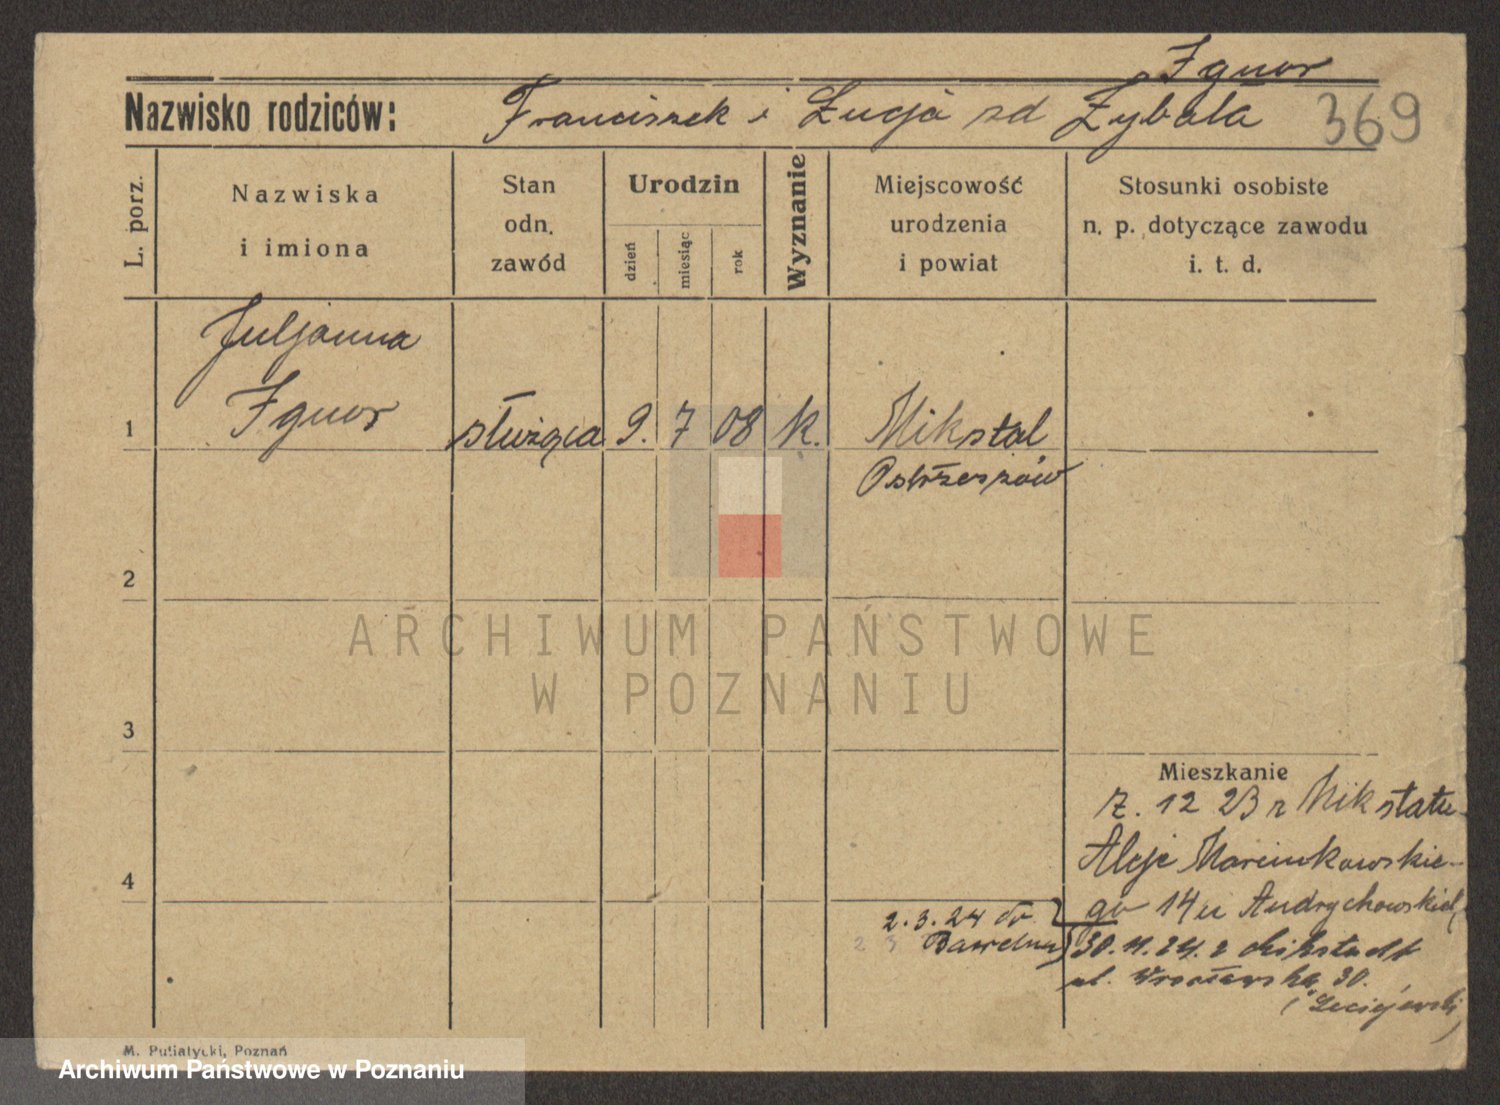 Ignor
Nazwisko rodziców: Franciszek i Łucja zd Zybała 369
L. porz.
Nazwiska
i imiona
Stan
odn.
zawód
Urodzin
dzień
miesiąc
rok
Wyznanie
Miejscowość
urodzenia
i powiat
Stosunki osobiste
n. p. dotyczące zawodu
i. t. d.
Juljanna
1 Ignor służąca 9. 7 08 k. Mikstat
Ostrzeszów
2
ARCHIWUM PAŃSTWOWE
W POZNANIU
3
Mieszkanie
z. 12 23 z Mikstatu
Aleje Marcinkowskie-
4
go 14 u Andrychowskich
2.3.24 do
30.11.24. z Mikstadt
ul. Wrocławska 30.
M. Putiatycki, Poznań
Archiwum Państwowe w Poznaniu